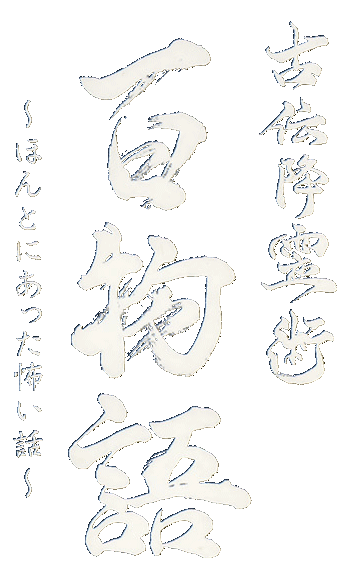 古伝降霊術
百物語
～ほんとにあった怖い話～